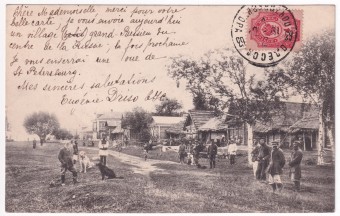 Chère Mademoiselle merci pour votre
belle carte. Je vous envoie aujourd'hui
un village grand Russien du
centre de la Russie; la fois prochaine
je vous enverrai une vue de
St Petersburg.
Mes sincères salutations
Eugénie